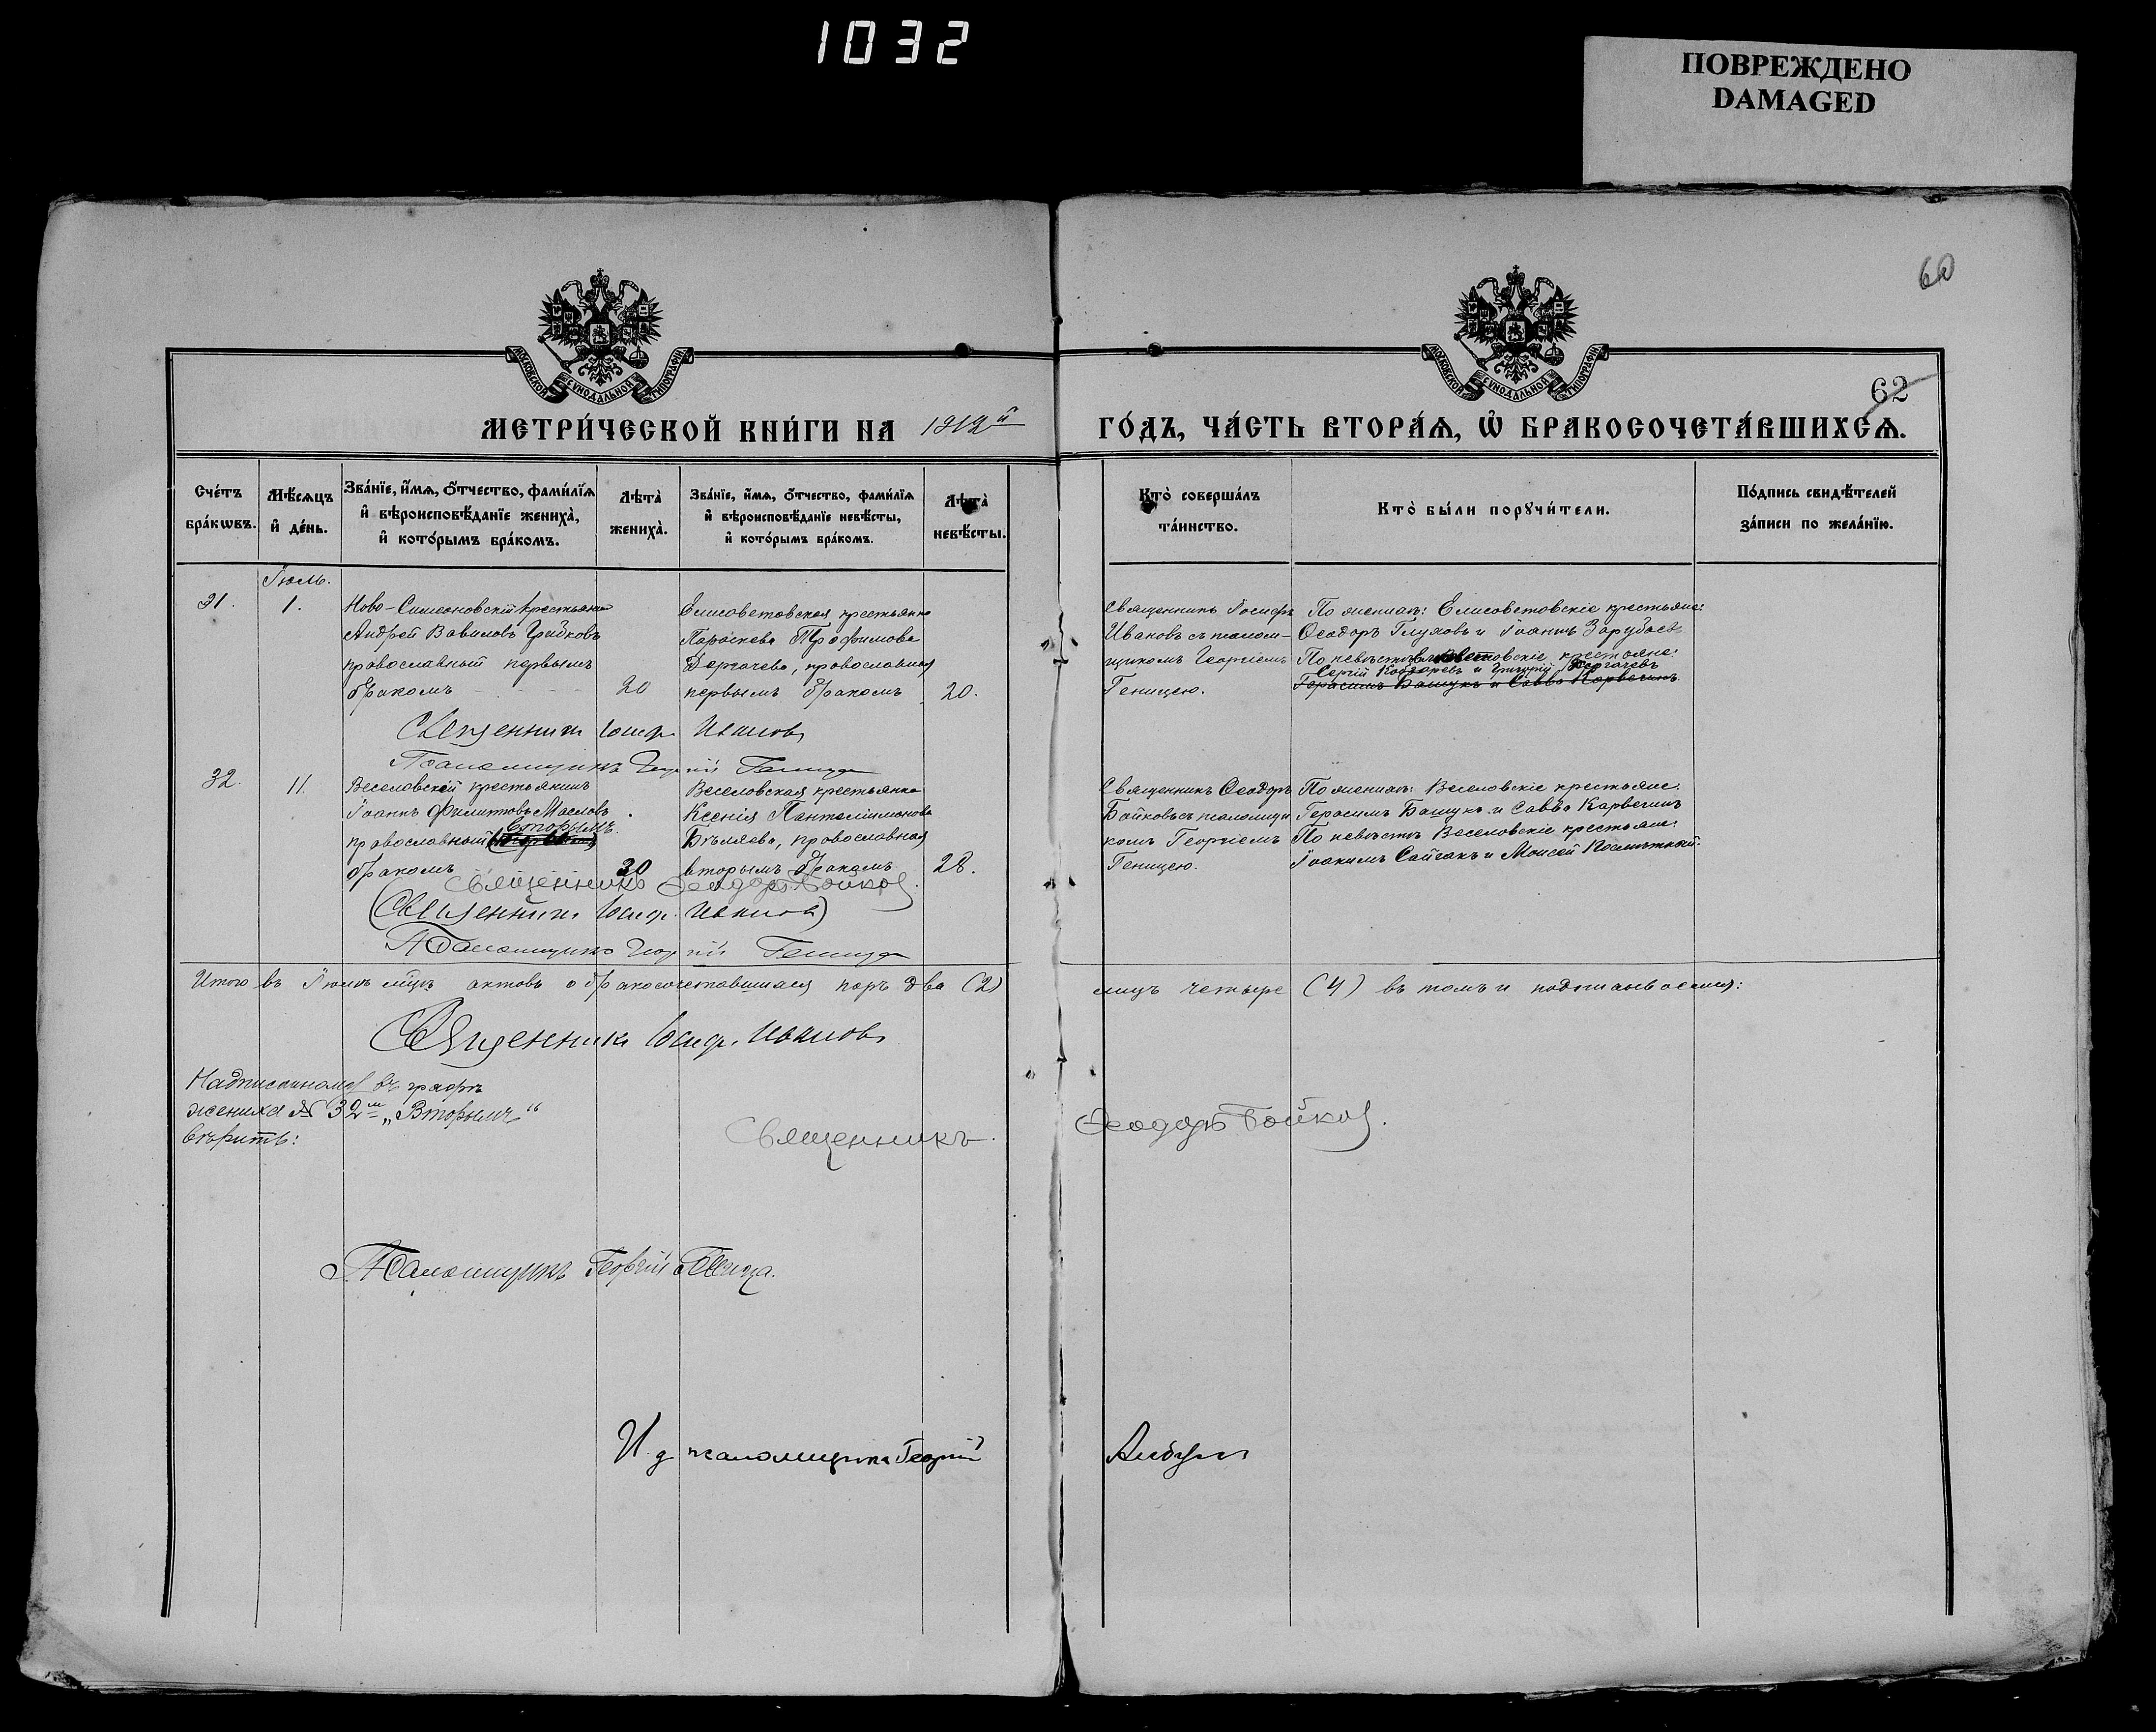 1032
ПОВРЕЖДЕНО
DAMAGED
60
62
МОСКОВСКОЙ СѴНОДАЛЬНОЙ ТИПОГРАФІИ
МОСКОВСКОЙ СѴНОДАЛЬНОЙ ТИПОГРАФІИ
МЕТРИ́ЧЕСКОЙ КНИ́ГИ НА 1912й ГО́ДЪ, ЧА́СТЬ ВТОРА́Ѧ, Ѡ҆ БРАКОСОЧЕТА́ВШИХСѦ.
Сче́тъ бра́кѡвъ.
Мѣ́сѧцъ и҆ де́нь.
Зва́нїе, и҆́мѧ, ѻ҆́тчество, фами́лїѧ и҆ вѣроисповѣ́данїе жениха̀, и҆ кото́рымъ бра́комъ.
Лѣта̀ жениха̀.
Зва́нїе, и҆́мѧ, ѻ҆́тчество, фами́лїѧ и҆ вѣроисповѣ́данїе невѣ́сты, и҆ кото́рымъ бра́комъ.
Лѣта̀ невѣ́сты.
Кто̀ соверша́лъ та́инство.
Кто̀ бы́ли порꙋчи́тели.
По́дпись свидѣ́телей за́писи по жела́нїю.
31.
Іюль.
1.
Ново-Симеоновскій крестьянинъ
Андрей Вавиловъ Грибковъ
православный первымъ
бракомъ
20
Елисоветовская крестьянка
Параскева Трофимова
Дергачева, православная
первымъ бракомъ
20.
Священникъ Іосифъ
Ивановъ съ псалом-
щикомъ Георгіемъ
Геницею.
По женихѣ: Елисоветовскіе крестьяне:
Ѳеодоръ Глуховъ и Іоаннъ Зарубаевъ
По невѣстѣ: Елисоветовскіе крестьяне:
Сергій Кобзаревъ и Григорій Дергачевъ
Герасимъ Башукъ и Савва Карвегинъ
Священникъ Іосиф. Ивановъ
Псаломщикъ Георгій Геница
32.
11.
Веселовскій крестьянинъ
Іоаннъ Филитовъ Масловъ
вторымъ
православный
бракомъ
30
Веселовская крестьянка
Ксенія Пантелиімонова
Бѣляева, православная
вторымъ бракомъ
28.
Священникъ Ѳеодоръ
Бойковъ съ псаломщи
комъ Георгіемъ
Геницею.
По женихѣ: Веселовскіе крестьяне:
Герасимъ Башукъ и Савва Карвегинъ
По невѣстѣ Веселовскіе крестьяне:
Іоакимъ Сайгакъ и Моисей
Священникъ Ѳеодоръ Бойков.
(Священникъ Іосиф. Ивановъ)
Псаломщикъ Георгій Геница
Итого въ Іюлѣ мцѣ актовъ о бракосочетавшихся паръ два (2) лицъ четыре (4) въ томъ и подписываемся:
Священникъ Іосиф. Ивановъ
Надписанному въ графѣ
жениха № 32м „Вторымъ“
вѣрить:
Священникъ Ѳеодоръ Бойков.
Псаломщикъ Георгій Геница.
И. д. псаломщика Георгій